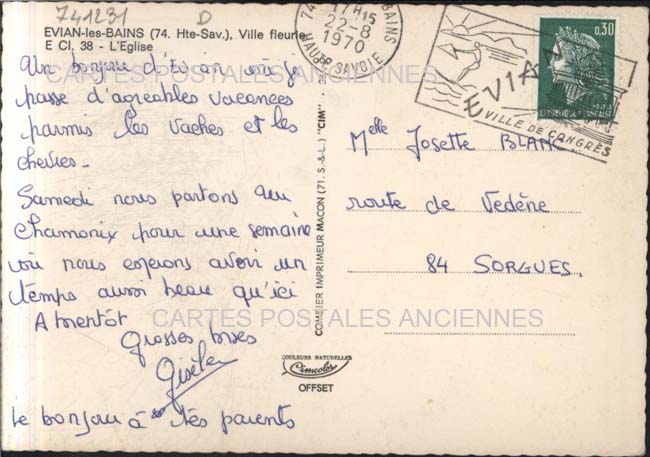 741231 D
EVIAN-les-BAINS (74. Hte-Sav.), Ville fleurie
E CI, 38 - L'Eglise
Un bonjour d'Evian où je
passe d'agreables vacances
parmis les vaches et les
chevres -
Samedi nous partons sur
Chamonix pour une semaine
où nous esperons avoir un
temps aussi beau qu'ici
A bientôt
Grosses bises
Gisèle
le bonjour à tes parents
COMBIER IMPRIMEUR MACON (71. S.-&-L.) "CIM"
COULEURS NATURELLES
Cimcolor
OFFSET
17H15
22-8
1970
HAUTE SAVOIE
BAINS
EVIAN
VILLE DE CONGRÈS
0,30
REPUBLIQUE FRANÇAISE
Melle Josette BLANC
route de Vedène
84 SORGUES.
CARTES POSTALES ANCIENNES
CARTES POSTALES ANCIENNES